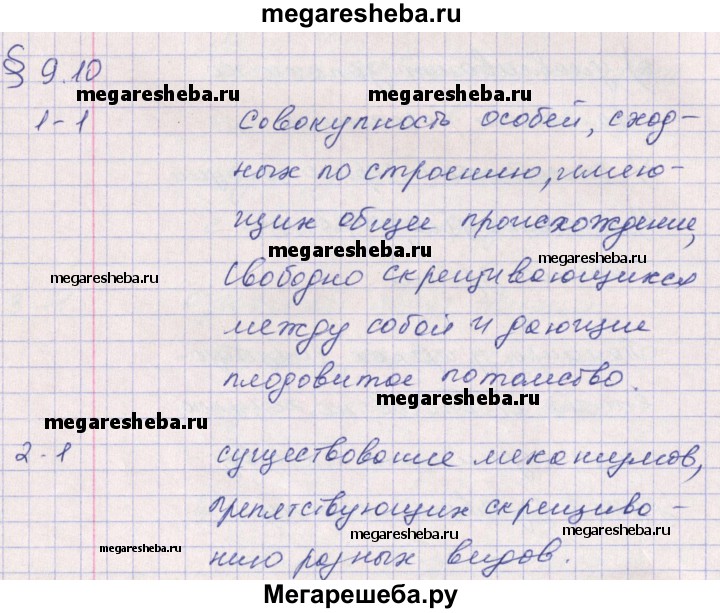 megaresheba.ru
§ 9.10
megaresheba.ru megaresheba.ru
1-1 Совокупность особей, сход-
ных по строению, имею-
щих общее происхождение,
megaresheba.ru megaresheba.ru
megaresheba.ru свободно скрещивающихся
между собой и дающие
плодовитое потомство.
megaresheba.ru megaresheba.ru
2-1 существование механизмов,
препятствующих скрещива-
megaresheba.ru megaresheba.ru
megaresheba.ru нию разных видов.
Мегарешеба.ру